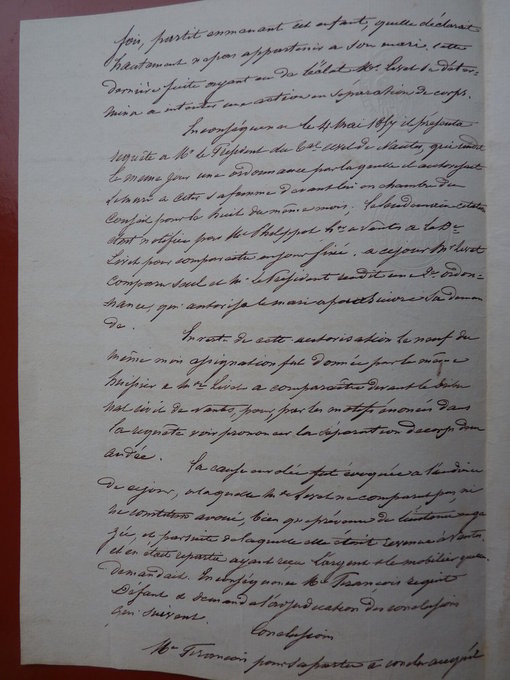 fois, partit emmenant cet enfant, qu'elle déclarait
hautement ne pas appartenir à son mari. cette
dernière fuite ayant eu de l'éclat Mr. Livet se déter-
mina à intenter une action en séparation de corps.
En conséquence le 4 Mai 1857 il présenta
requête à Mr le Président du tal civil de Nantes, qui rendit
le même jour une ordonnance par laquelle il autorisait
le mari à citer sa femme devant lui en chambre du
Conseil pour le huit du même mois.
dont notifiée par Me Phelippot hr. à Nantes à la De
Livet pour comparaître au jour fixé. a ce jour Mr Livet
comparu seul et Mr le Président rendit une 2e ordon-
nance, qui autorisa le mari a poursuivre sa deman
de.
En vertu de cette autorisation le neuf du
même mois assignation fut donnée par le même
huissier à Mme Livet a comparaître devant le tribu
nal civil de Nantes, pour par les motifs énoncés dans
la requête voir prononcer la séparation de corps dem
andée.
La cause enrolée fut évoquée à l'audience
de ce jour, a laquelle Me Livet ne comparut pas, ni
ne constitua avoué, bien que prévenue de l'instance enga
gée, et par suite de laquelle elle était revenue à Nantes,
et en était repartie ayant reçu l'argent et le mobilier qu'elle
demandait. En conséquence Me François requit
Défaut & demanda l'adjudication des conclusions
qui suivent.
Conclusions
Me François pour sa partie a conclu au qu'il